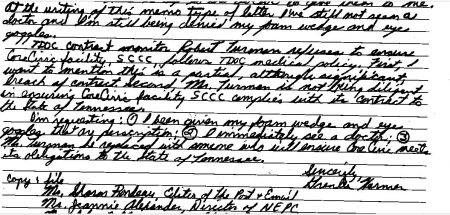 At the writing of this memo type of letter I've still not seen a
doctor and I'm still being denied my foam wedge and eye
goggles.
TDOC contract monitor Robert Turman refuses to ensure
CoreCivic facility, SCCC, follows TDOC medical policy. First, I
want to mention this is a partial, although significant,
breach of contract. Second, Mr. Turman is not being diligent
in ensuring CoreCivic facility SCCC complies with its contract to
the State of Tennessee.
I'm requesting: ① I been given my foam wedge and eye
goggles that my perscription; ② I immediately see a doctor; ③
Mr. Turman be replaced with someone who will ensure CoreCivic meets
its obligations to the State of Tennessee.
Sincerely,
Copy: file
Ms. Sharon Rondeau, Editor of The Post & Email
Ms. Jeannie Alexander, Director of NEPC